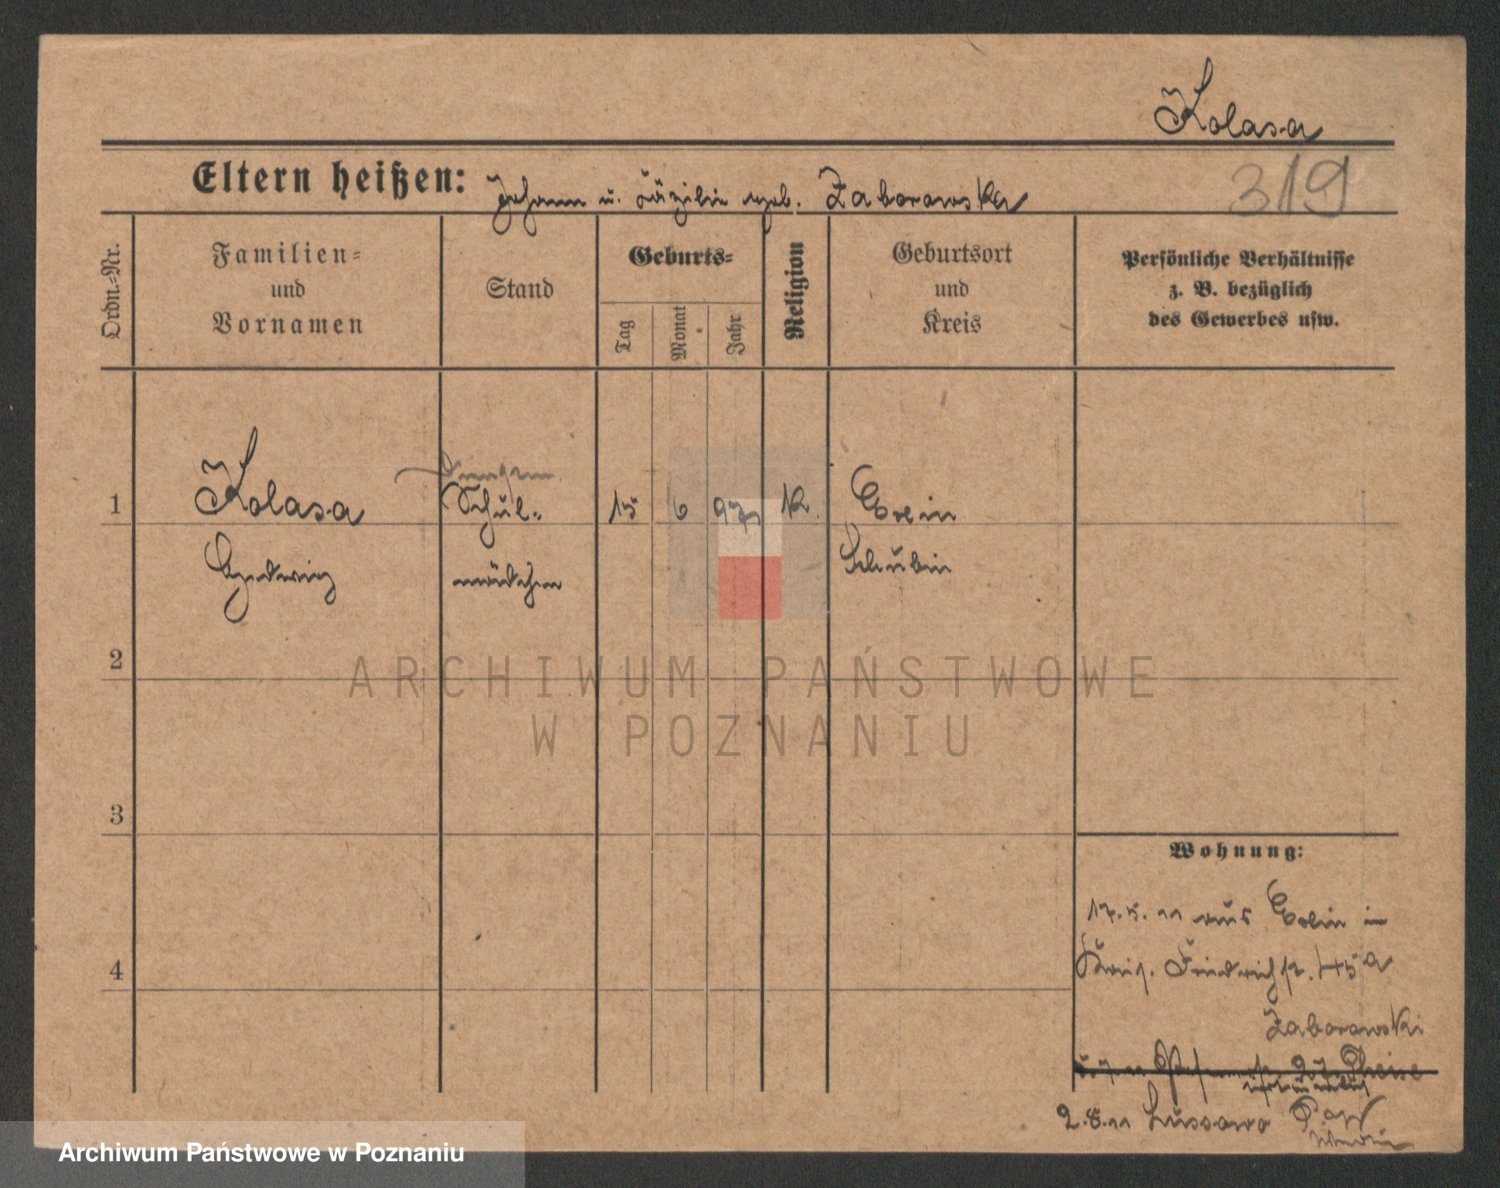 Kolasa
Eltern heißen: Johann u. Cäzilie geb. Zaborowska
319
Ordn.-Nr.
Familien-
und
Vornamen
Stand
Geburts-
Tag
Monat
Jahr
Religion
Geburtsort
und
Kreis
Persönliche Verhältnisse
z. B. bezüglich
des Gewerbes usw.
1
Kolasa
Schul-
15
6
97
K.
Exin
Hedwig
mädchen
Schubin
2
3
4
Wohnung:
17.5.11 aus Exin in
Friedrichstr. 45a
Zaborowski
2.8.11
ARCHIWUM PAŃSTWOWE
W POZNANIU
Archiwum Państwowe w Poznaniu